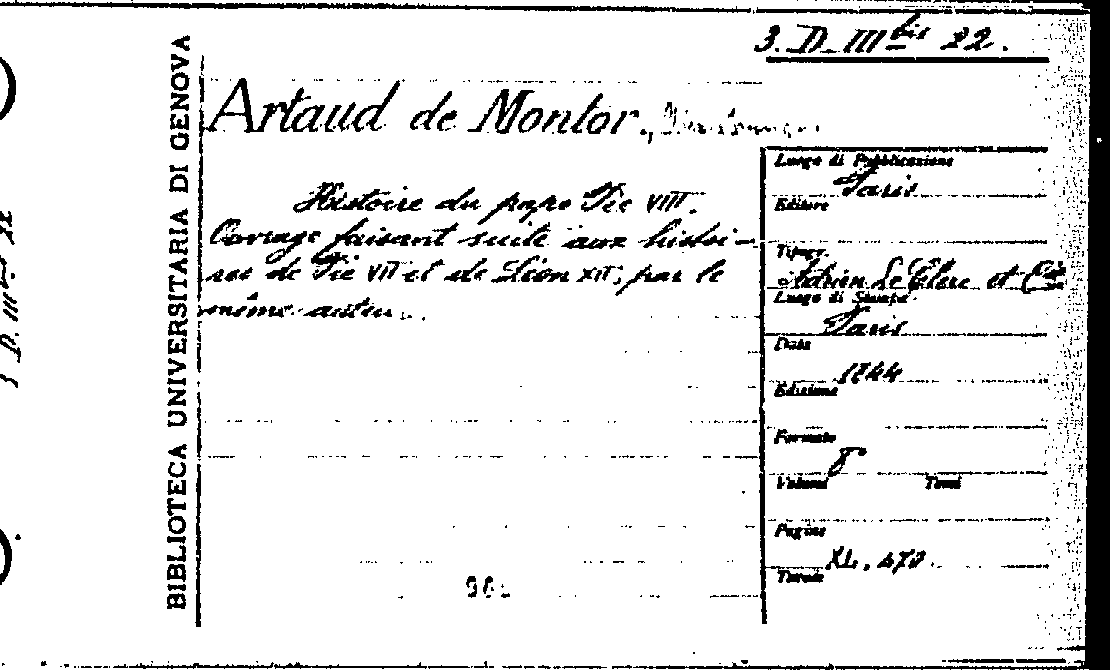 3. D. III bis 22.
BIBLIOTECA UNIVERSITARIA DI GENOVA
Artaud de Montor,
Histoire du pape Pie VIII.
Ouvrage faisant suite aux histoi-
res de Pie VII et de Léon XII, par le
même auteur.
Luogo di Pubblicazione
Paris
Editore
Tipogr.
Adrien Le Clere et Cie
Luogo di Stampa
Paris
Data
1844
Edizione
Formato
8°
Volumi Tomi
Pagine
XL, 470.
Tavole